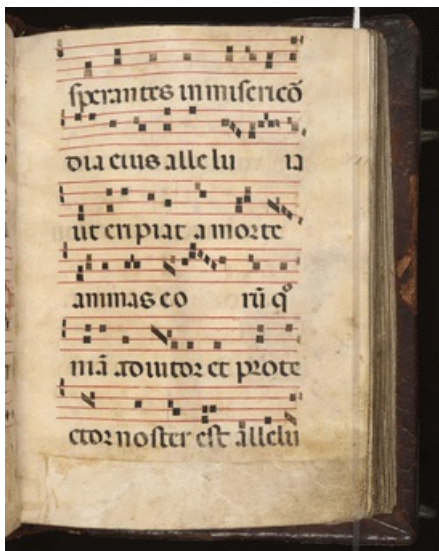 sperantes in misericō
dia eius alle lu ia
ut eripiat a morte
animas eo rū qͦ
niā adiutor et prote
ctor noster est allelu